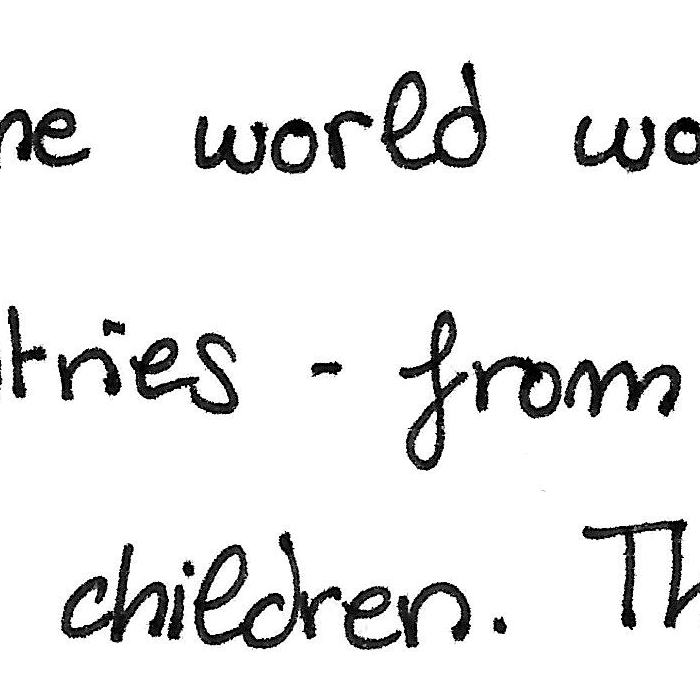 he world wo
tries - from
children. Th